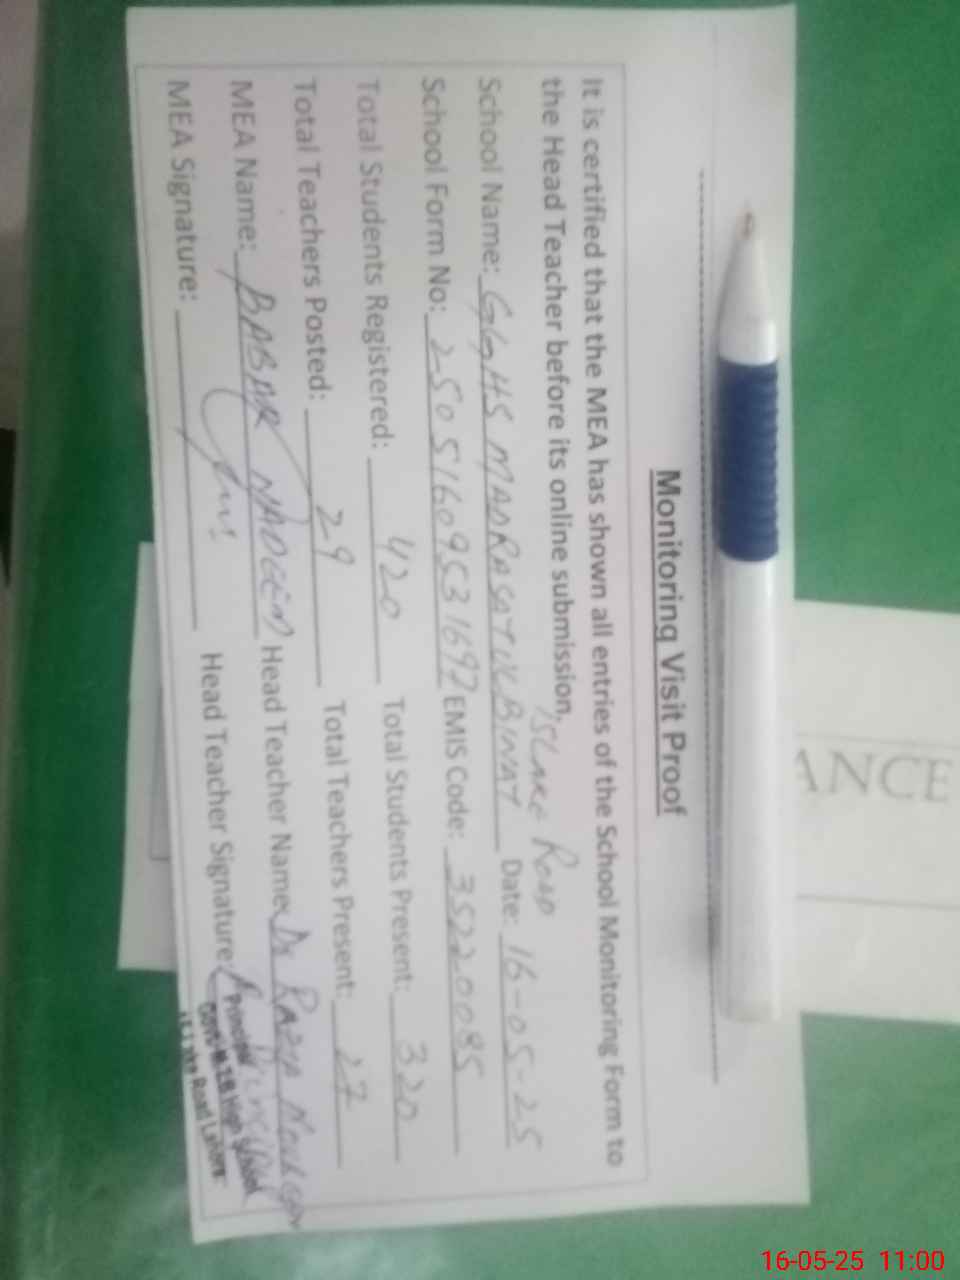 Monitoring Visit Proof
It is certified that the MEA has shown all entries of the School Monitoring Form to
the Head Teacher before its online submission.
School Name: GGHS MADRASATUL BINAT Date: 16-05-25
School Form No: 25051609531692 EMIS Code: 35220085
Total Students Registered: 420 Total Students Present: 320
Total Teachers Posted: 29 Total Teachers Present: 27
MEA Name: BABAR NADEEM Head Teacher Name: Dr Razia
MEA Signature: Head Teacher Signature:
Principal
High School
Lake Road Lahore
ANCE
16-05-25 11:00